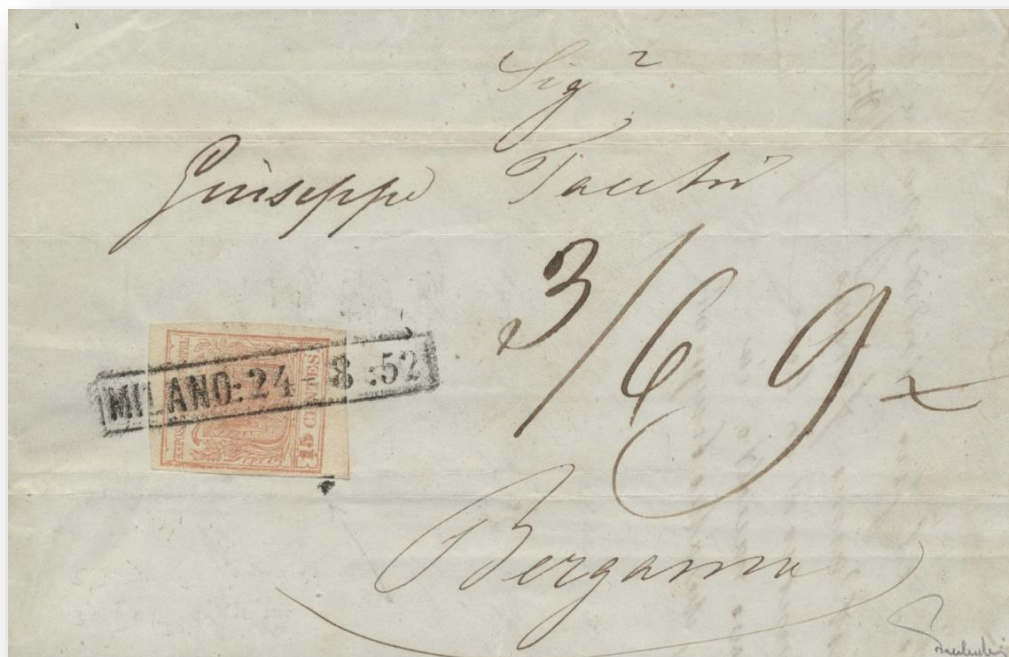 Sig.r
Giuseppe
3/6 9
MILANO: 24 - 8 :52
15 CENTES
Bergamo